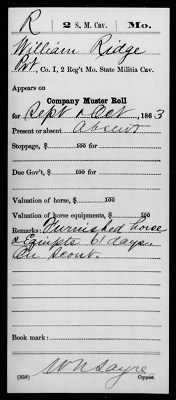 R 2 S. M. Cav. Mo.
William Ridge
Pvt, Co. I, 2 Reg't Mo. State Militia Cav.
Appears on
Company Muster Roll
for Sept & Oct, 1863
Present or absent Absent
Stoppage, $ 100 for
Due Gov't, $ 100 for
Valuation of horse, $ 100
Valuation of horse equipments, $ 100
Remarks: Furnished horse
& Equipts 61 days.
On Scout.
Book mark:
(858) W N Sayre
Copyist.